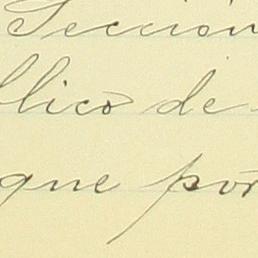 Sección
blico de
que por